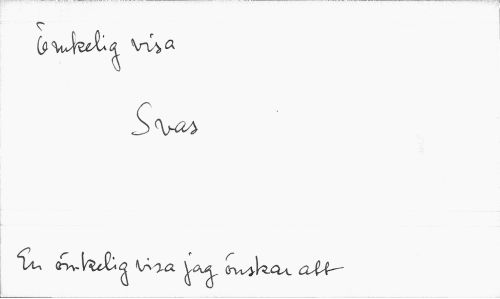 Ömkelig visa
Svas
En ömkelig visa jag önskar att